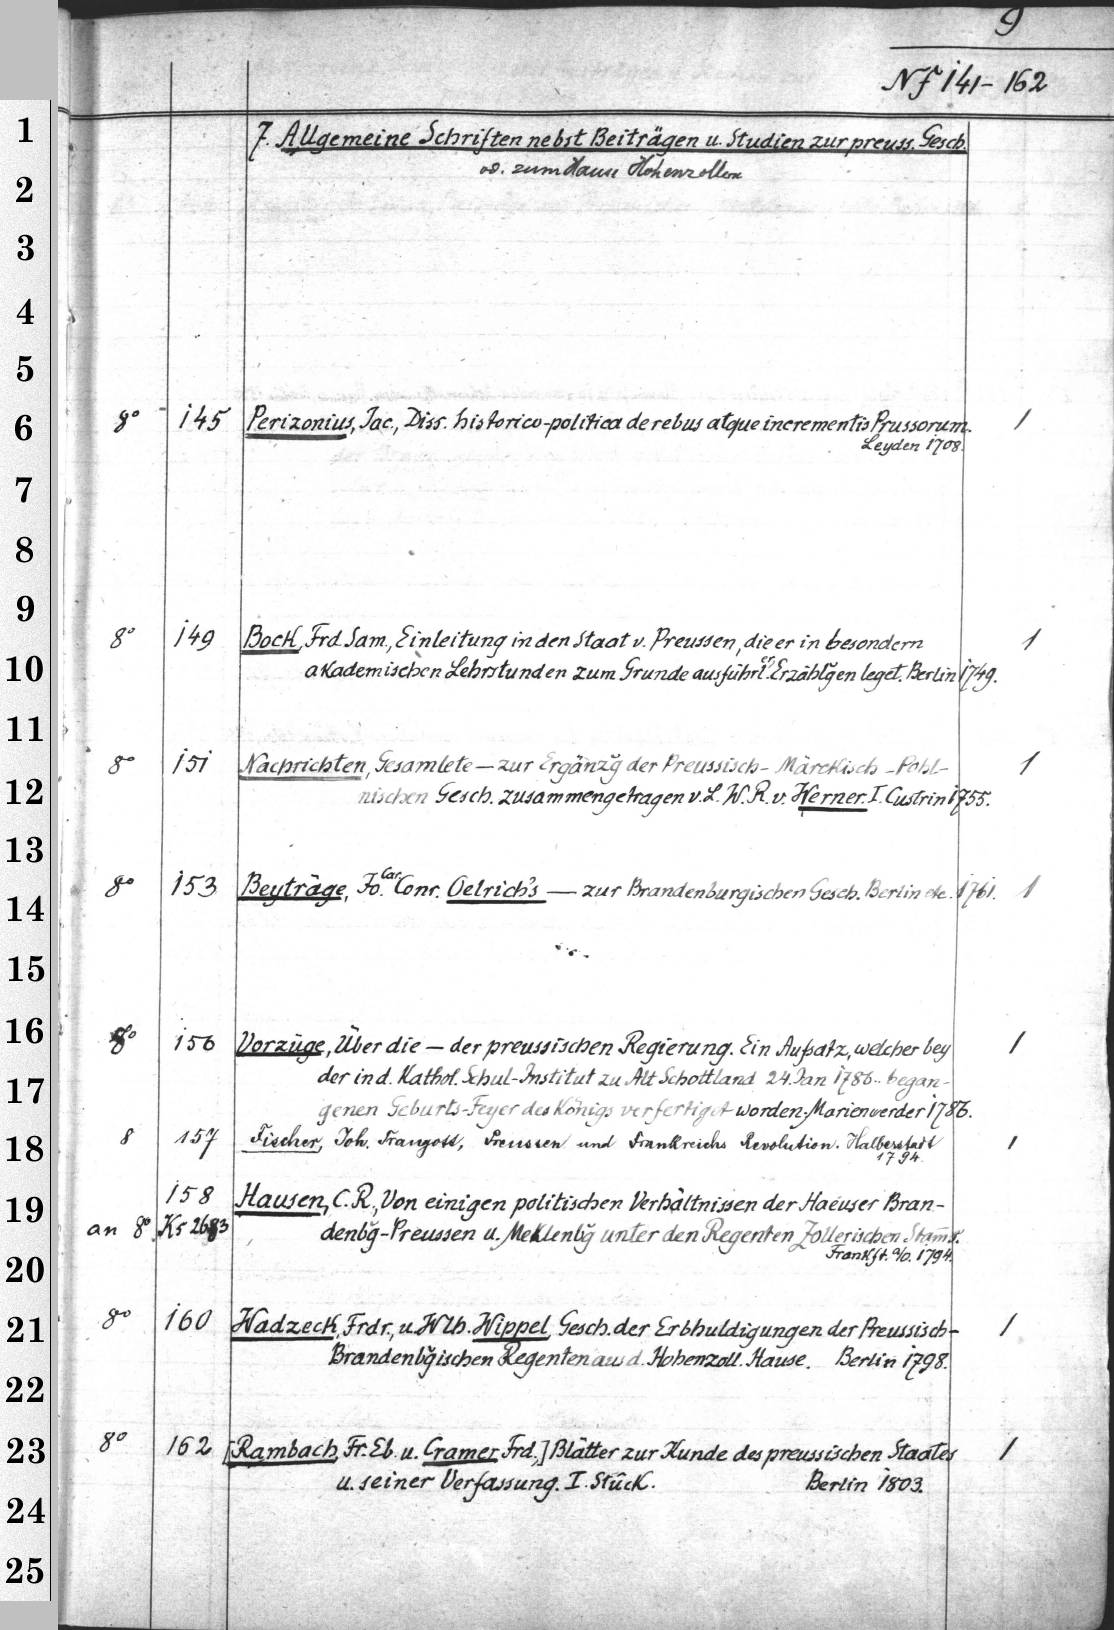 9
Nf 141 – 162
1
7. Allgemeine Schriften nebst Beiträgen u. Studien zur preuss. Gesch.
od. zum Hause Hohenzollern
2
3
4
5
8° 145 Perizonius, Jac., Diss. historico-politica de rebus atque incrementis Prussorum. 1
6
Leyden 1708.
7
8
9
8° 149 Bock, Frd. Sam., Einleitung in den Staat v. Preussen, die er in besondern 1
10 akademischen Lehrstunden zum Grunde ausführl. Erzählg̃en leget. Berlin 1749.
11
8° 151 Nachrichten, Gesamlete — zur Ergänzg̃ der Preussisch- Märckisch - Pohl- 1
12 nischen Gesch. zusammengetragen v. L. W. R. v. Werner. I. Custrin 1755.
13
8° 153 Beyträge, Jo. Car. Conr. Oelrich's — zur Brandenburgischen Gesch. Berlin etc. 1761. 1
14
15
16
8° 156 Vorzüge, Über die — der preussischen Regierung. Ein Aufsatz, welcher bey 1
der in d. Kathol. Schul-Institut zu Alt Schottland 24. Jan 1786.. began-
17
genen Geburts-Feyer des Königs verfertiget worden. Marienwerder 1786.
18 8 157 Fischer, Joh. Traugott, Preussen und Frankreichs Revolution. Halberstadt 1
1794.
158 Hausen, C. R., Von einigen politischen Verhältnissen der Haeuser Bran-
19
an 8° Kr 2683 denbg̃-Preussen u. Meklenbg̃ unter den Regenten Zollerischen Stam̄s.
Frankft. a/O. 1794.
20
8° 160 Wadzeck, Frdr., u. Wlh. Wippel, Gesch. der Erbhuldigungen der Preussisch- 1
21
Brandenbg̃ischen Regenten aus d. Hohenzoll. Hause. Berlin 1798.
22
8° 162 [Rambach, Fr. Eb. u. Cramer, Frd.,] Blätter zur Kunde des preussischen Staates 1
23
u. seiner Verfassung. I. Stück. Berlin 1803.
24
25